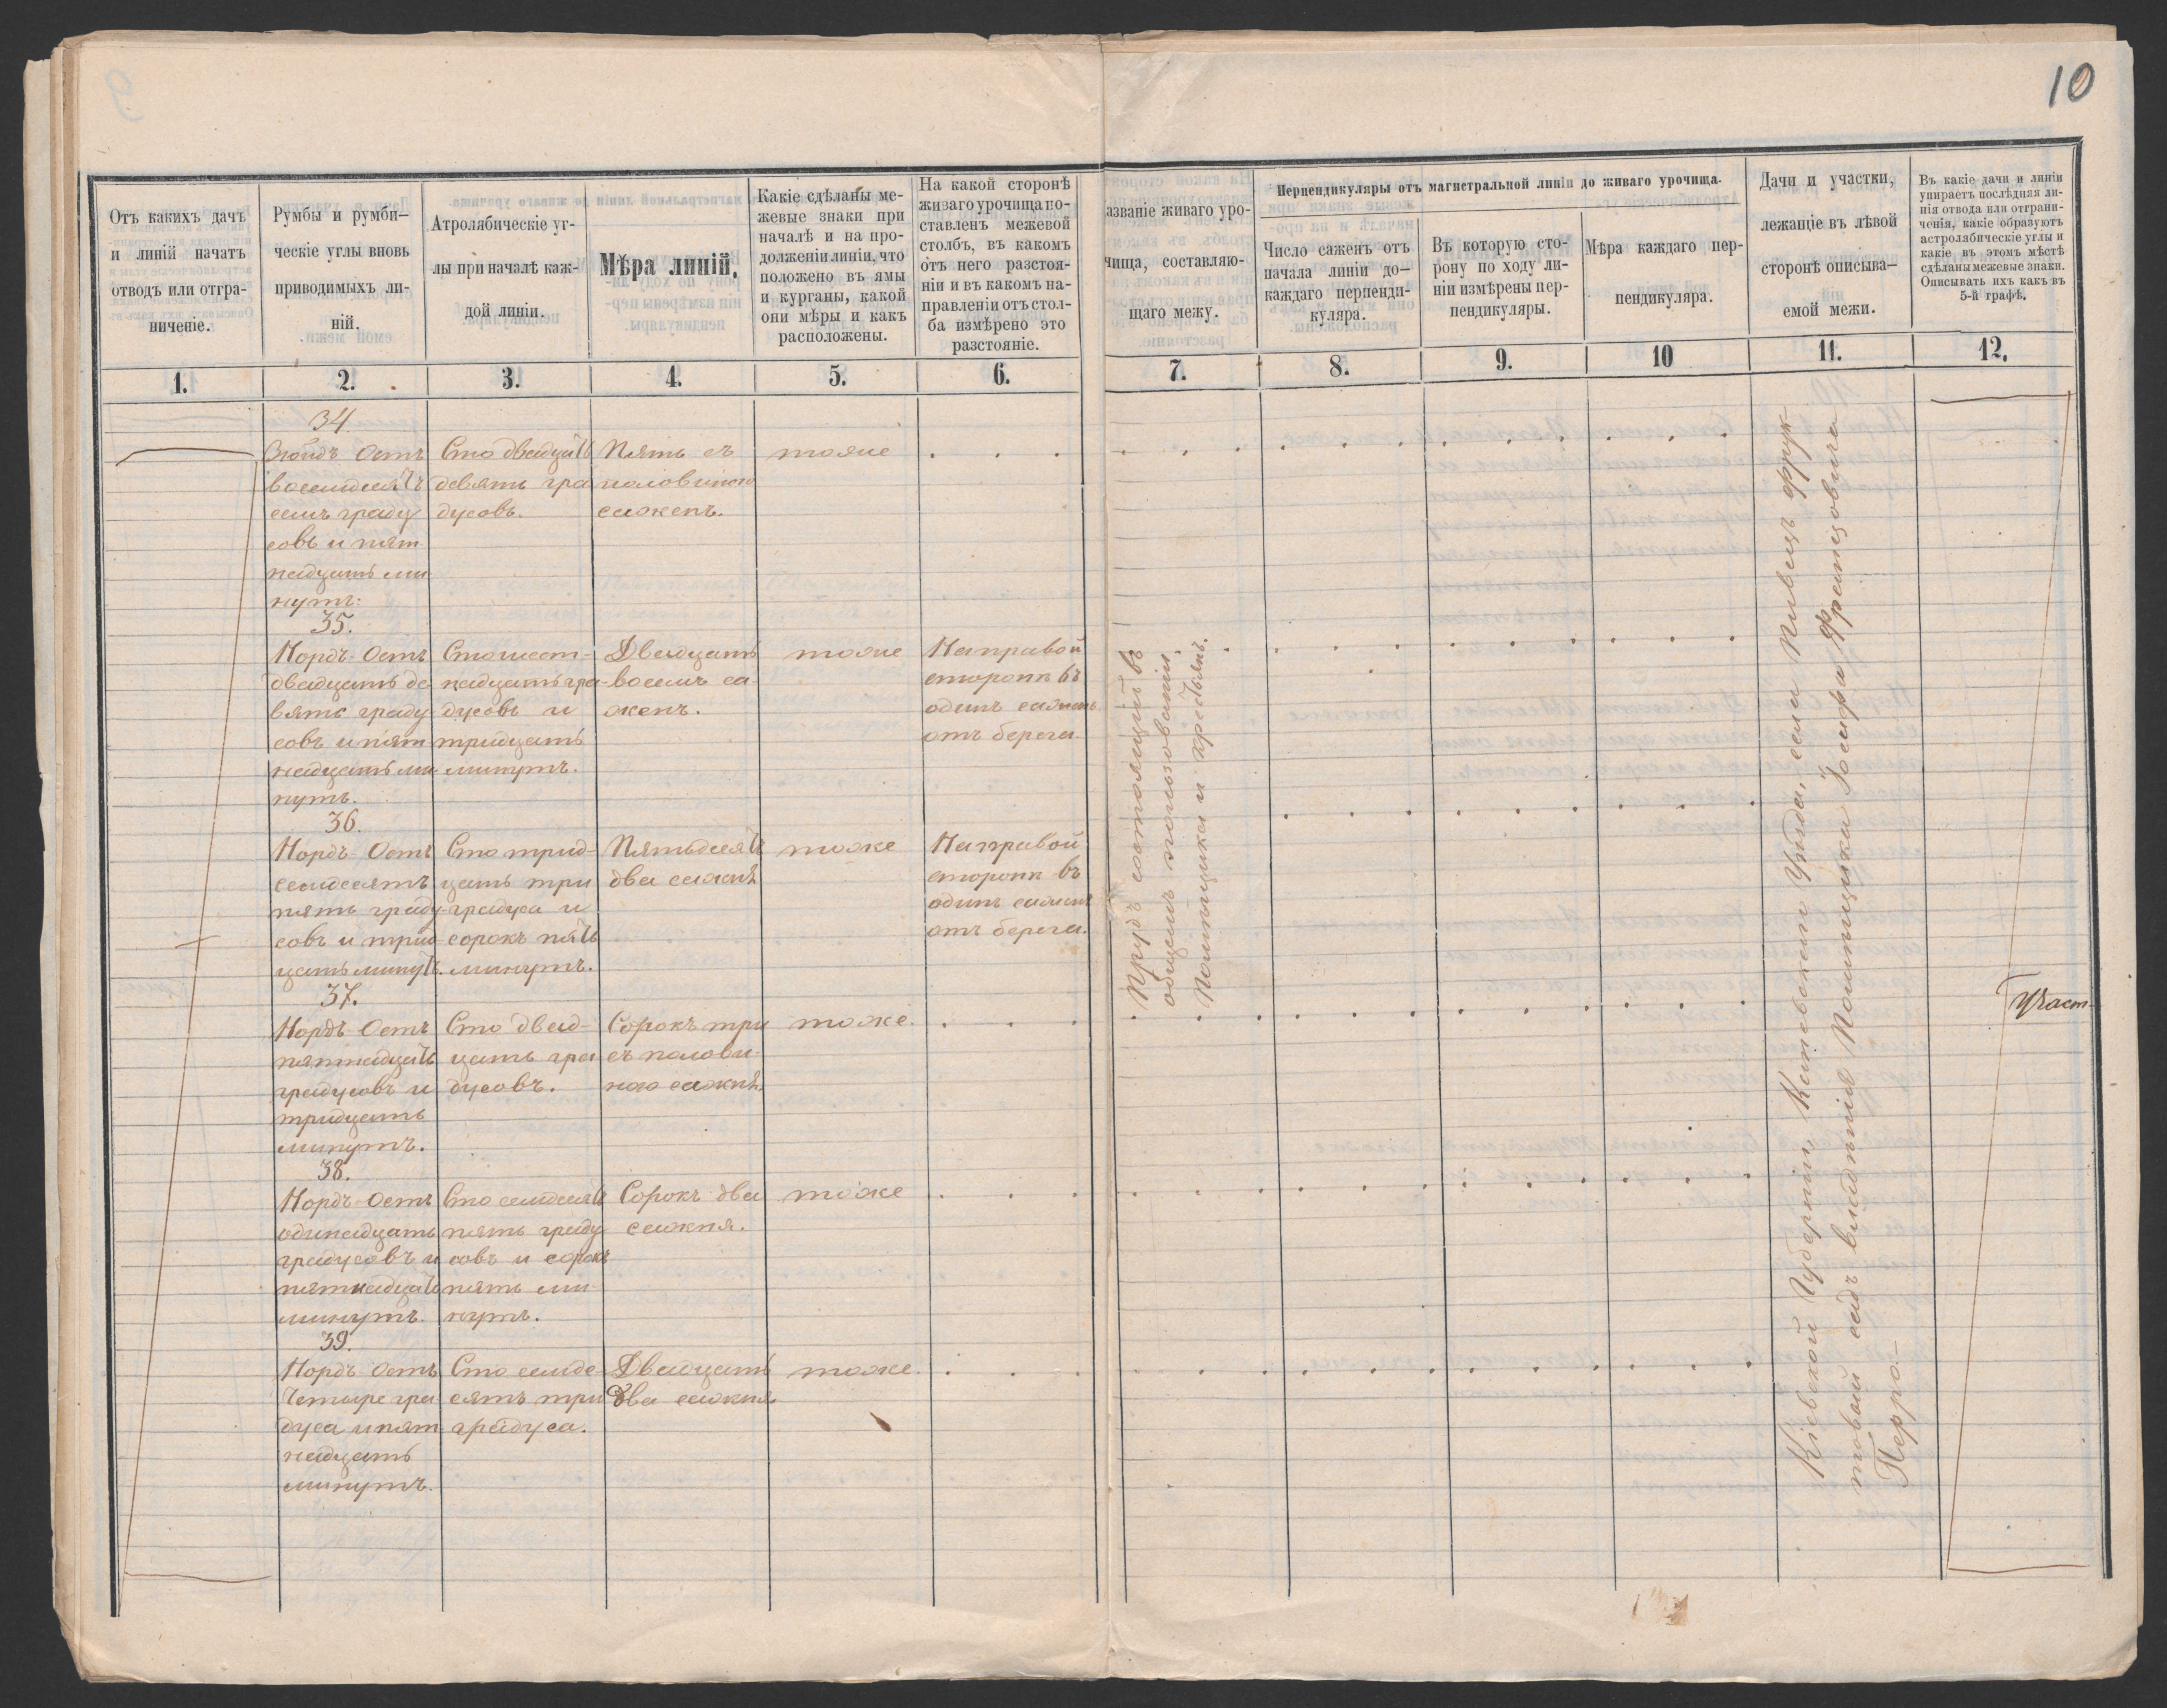 10
Отъ какихъ дачъ
и линій начатъ
отводъ или отгра-
ниченіе.
Румбы и румби-
ческіе углы вновь
приводимыхъ ли-
ній.
Атролябическіе уг-
лы при началѣ каж-
дой линіи.
Мѣра линій.
Какіе сдѣланы ме-
жевые знаки при
началѣ и на про-
долженіи линіи, что
положено въ ямы
и курганы, какой
они мѣры и какъ
расположены.
На какой сторонѣ
живаго урочища по-
ставленъ межевой
столбъ, въ какомъ
отъ него разстоя-
ніи и въ какомъ на-
правленіи отъ стол-
ба измѣрено это
разстояніе.
азваніе живаго уро-
чища, составляю-
щаго межу.
Перпендикуляры отъ магистральной линіи до живаго урочища.
Число саженъ отъ
начала линіи до-
каждаго перпенди-
куляра.
Въ которую сто-
рону по ходу ли-
ніи измѣрены пер-
пендикуляры.
Мѣра каждаго пер-
пендикуляра.
Дачи и участки,
лежащіе въ лѣвой
сторонѣ описыва-
емой межи.
Въ какіе дачи и линіи
упираетъ послѣдняя ли-
нія отвода или отграни-
ченія, какіе образуютъ
астролябическіе углы и
какіе въ этомъ мѣстѣ
сдѣланы межевые знаки.
Описывать ихъ какъ въ
5-й графѣ.
1. 2. 3. 4. 5. 6. 7. 8. 9. 10 11. 12.
34
Зюйдъ Остъ
восемдесятъ
семъ граду
совъ и пят
надцать ми
нутъ:
Сто двадцать
девять гра
дусовъ.
Пять съ
половиною
саженъ.
тоже
35.
Нордъ-Остъ
двадцать де
вять граду
совъ и пят
надцать ми
нутъ.
Сто шест-
надцать гра-
дусовъ и
тридцать
минутъ.
Двадцать
восемъ са-
женъ.
тоже
На правой
сторонѣ въ
одинъ сажень
отъ берега
36.
Нордъ-Остъ
семдесятъ
пять граду
совъ и трид
цать минутъ.
Сто трид-
цать три
градуса и
сорокъ пять
минутъ.
Пятьдесятъ
два сажня
тоже
На правой
сторонѣ въ
одинъ сажень
отъ берега.
37.
Нордъ-Остъ
пятнадцать
градусовъ и
тридцать
минутъ.
Сто двад-
цать гра
дусовъ.
Сорокъ три
съ полови-
ною сажня.
тоже.
38.
Нордъ-Остъ
одинадцать
градусовъ и
пятнадцать
минутъ.
Сто семдесятъ
пять граду
совъ и сорокъ
пять ми-
нутъ.
Сорокъ два
сажня.
тоже
39.
Нордъ Остъ
Четыре гра
дуса и пят
надцать
минутъ.
Сто семде-
сятъ три
градуса.
Двадцать
два сажня
тоже.
Прудъ состоящій въ
общемъ пользованіи
Помѣщика и крестьянъ.
Кіевской Губерніи, Каневского Уѣзда, села Пивецъ фрук-
товый садъ владѣнія Помѣщика Іосифа Францовича
Перро.-
Участ-